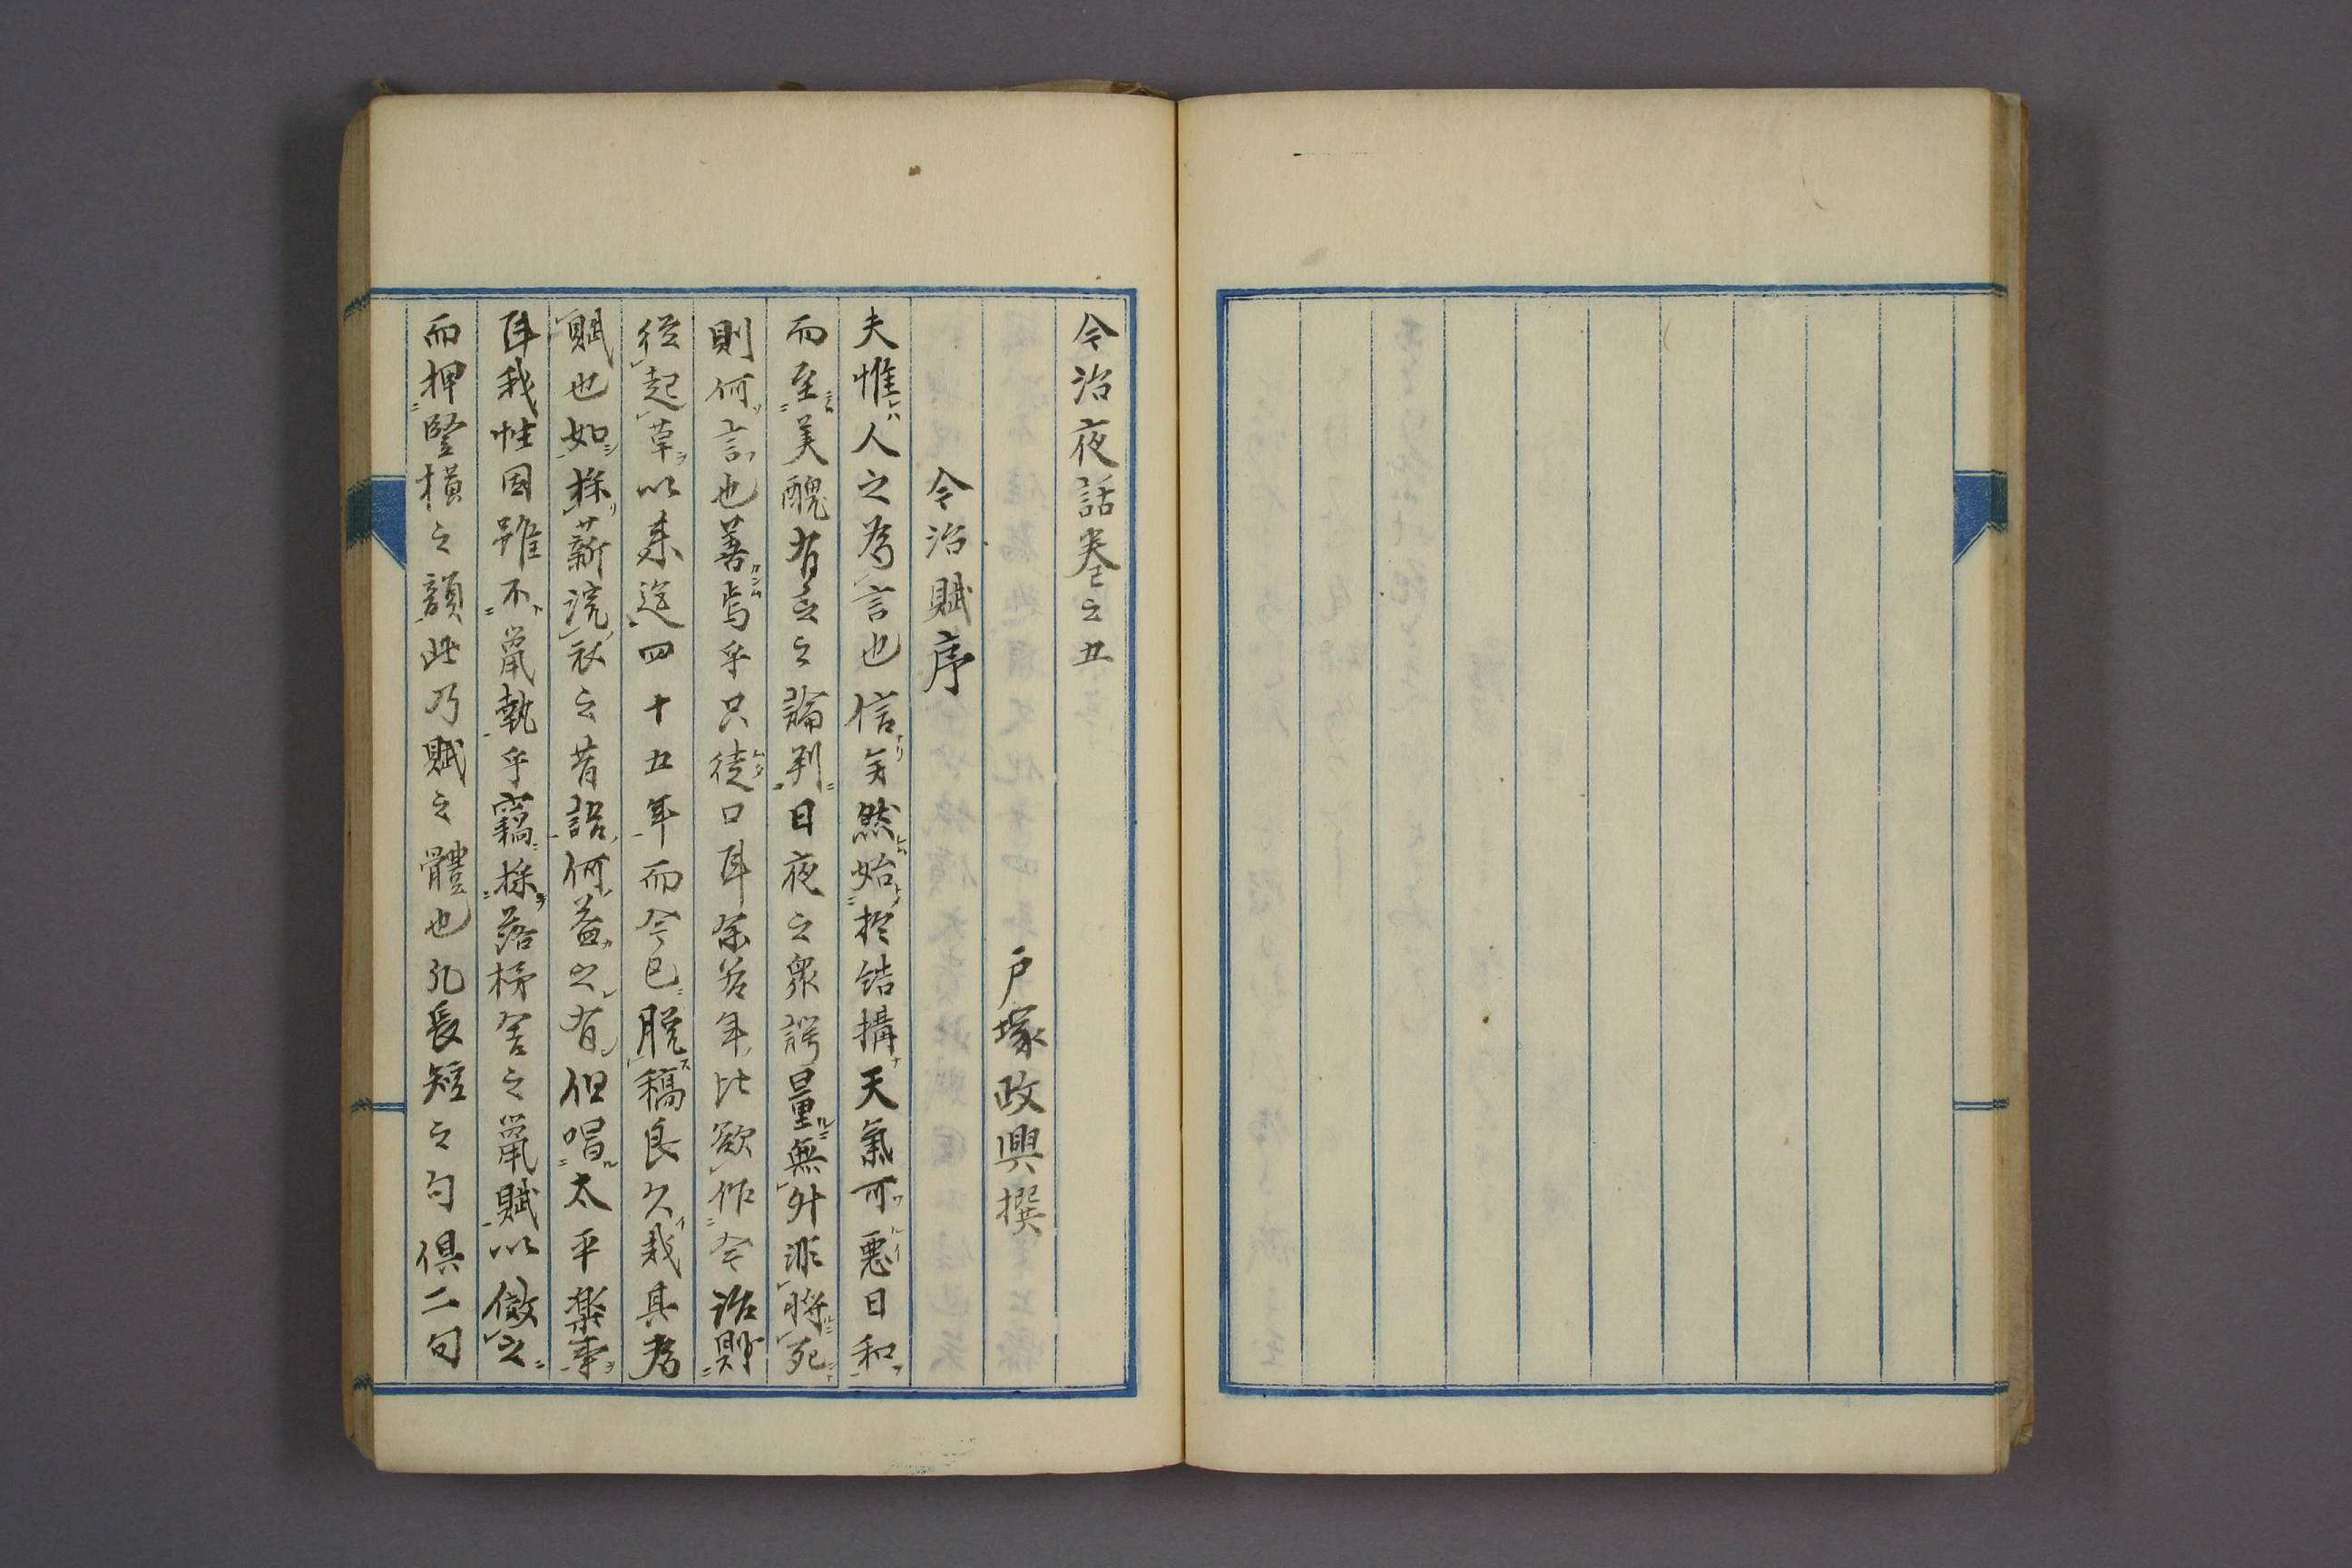 今治夜話巻之五
戸塚政興撰
今治賦序
夫惟人之為言也信矣然始於結搆天氣可悪日和
而至美醜有之論判日夜之衆評量無外誹將死
則何言也善焉乎只徒口耳余若年比欲作今治賦
従起草以来迄四十五年而今已脱稿良久哉其為
賦也如採薪浣衣之昔話何益之有但唱太平楽事
耳我性固雖不鼠執乎竊採落栲舍之鼠賦以倣之
而押竪横之韻此乃賦之體也凡長短之句倶二句